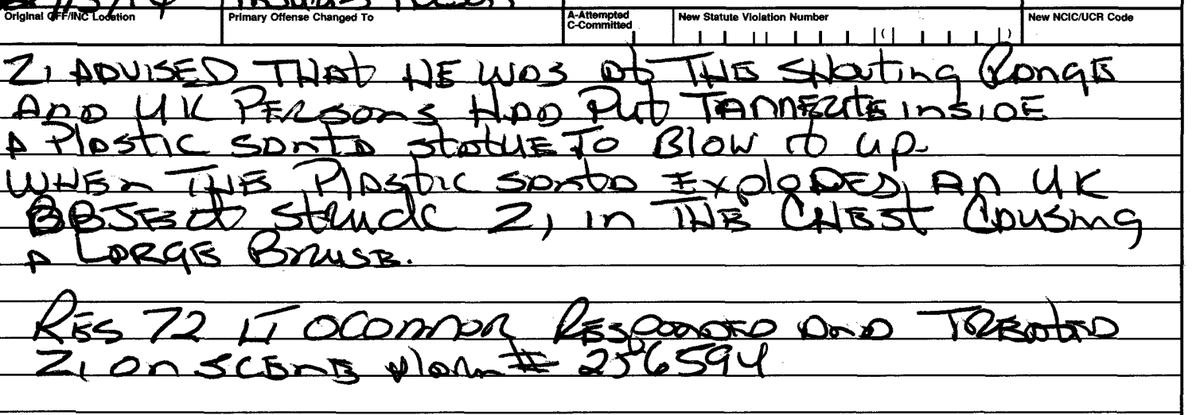 Original OFF/INC Location Primary Offense Changed To A-Attempted C-Committed New Statute Violation Number New NCIC/UCR Code
( )
Z1 ADVISED THAT HE WAS at THE SHouting RANGE
AND UK PERSONS HAD PUT TANNERITE INSIDE
A PLASTIC SANTA statuE TO BLOW it up.
WHEN THE PLASTIC SANTA EXPLODED, AN UK
OBJECT STRUCK Z1 in THE CHEST CAUSING
A LARGE BRUISE.
RES 72 LT OCONNOR RESPONDED AND TREATED
Z1 ON SCENE Alarm # 256594